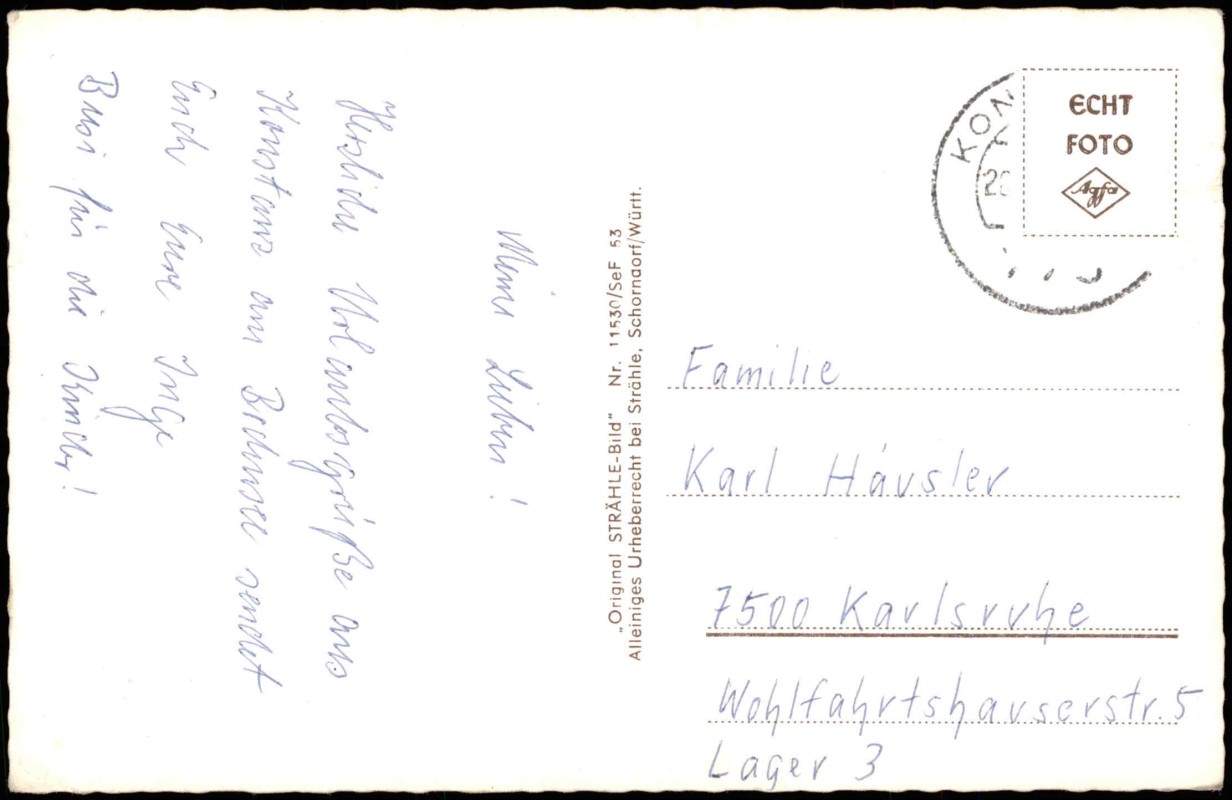 Meine Lieben!
Herzliche Urlaubsgrüße aus
Konstanz am Bodensee sendet
Euch Eure Inge
Busi für die Kinder!
„Original STRÄHLE-Bild" Nr. 11530/SeF 53
Alleiniges Urheberrecht bei Strähle, Schorndorf/Württ.
ECHT
FOTO
Agfa
Familie
Karl Häusler
7500 Karlsruhe
Wohlfahrtshauserstr. 5
Lager 3